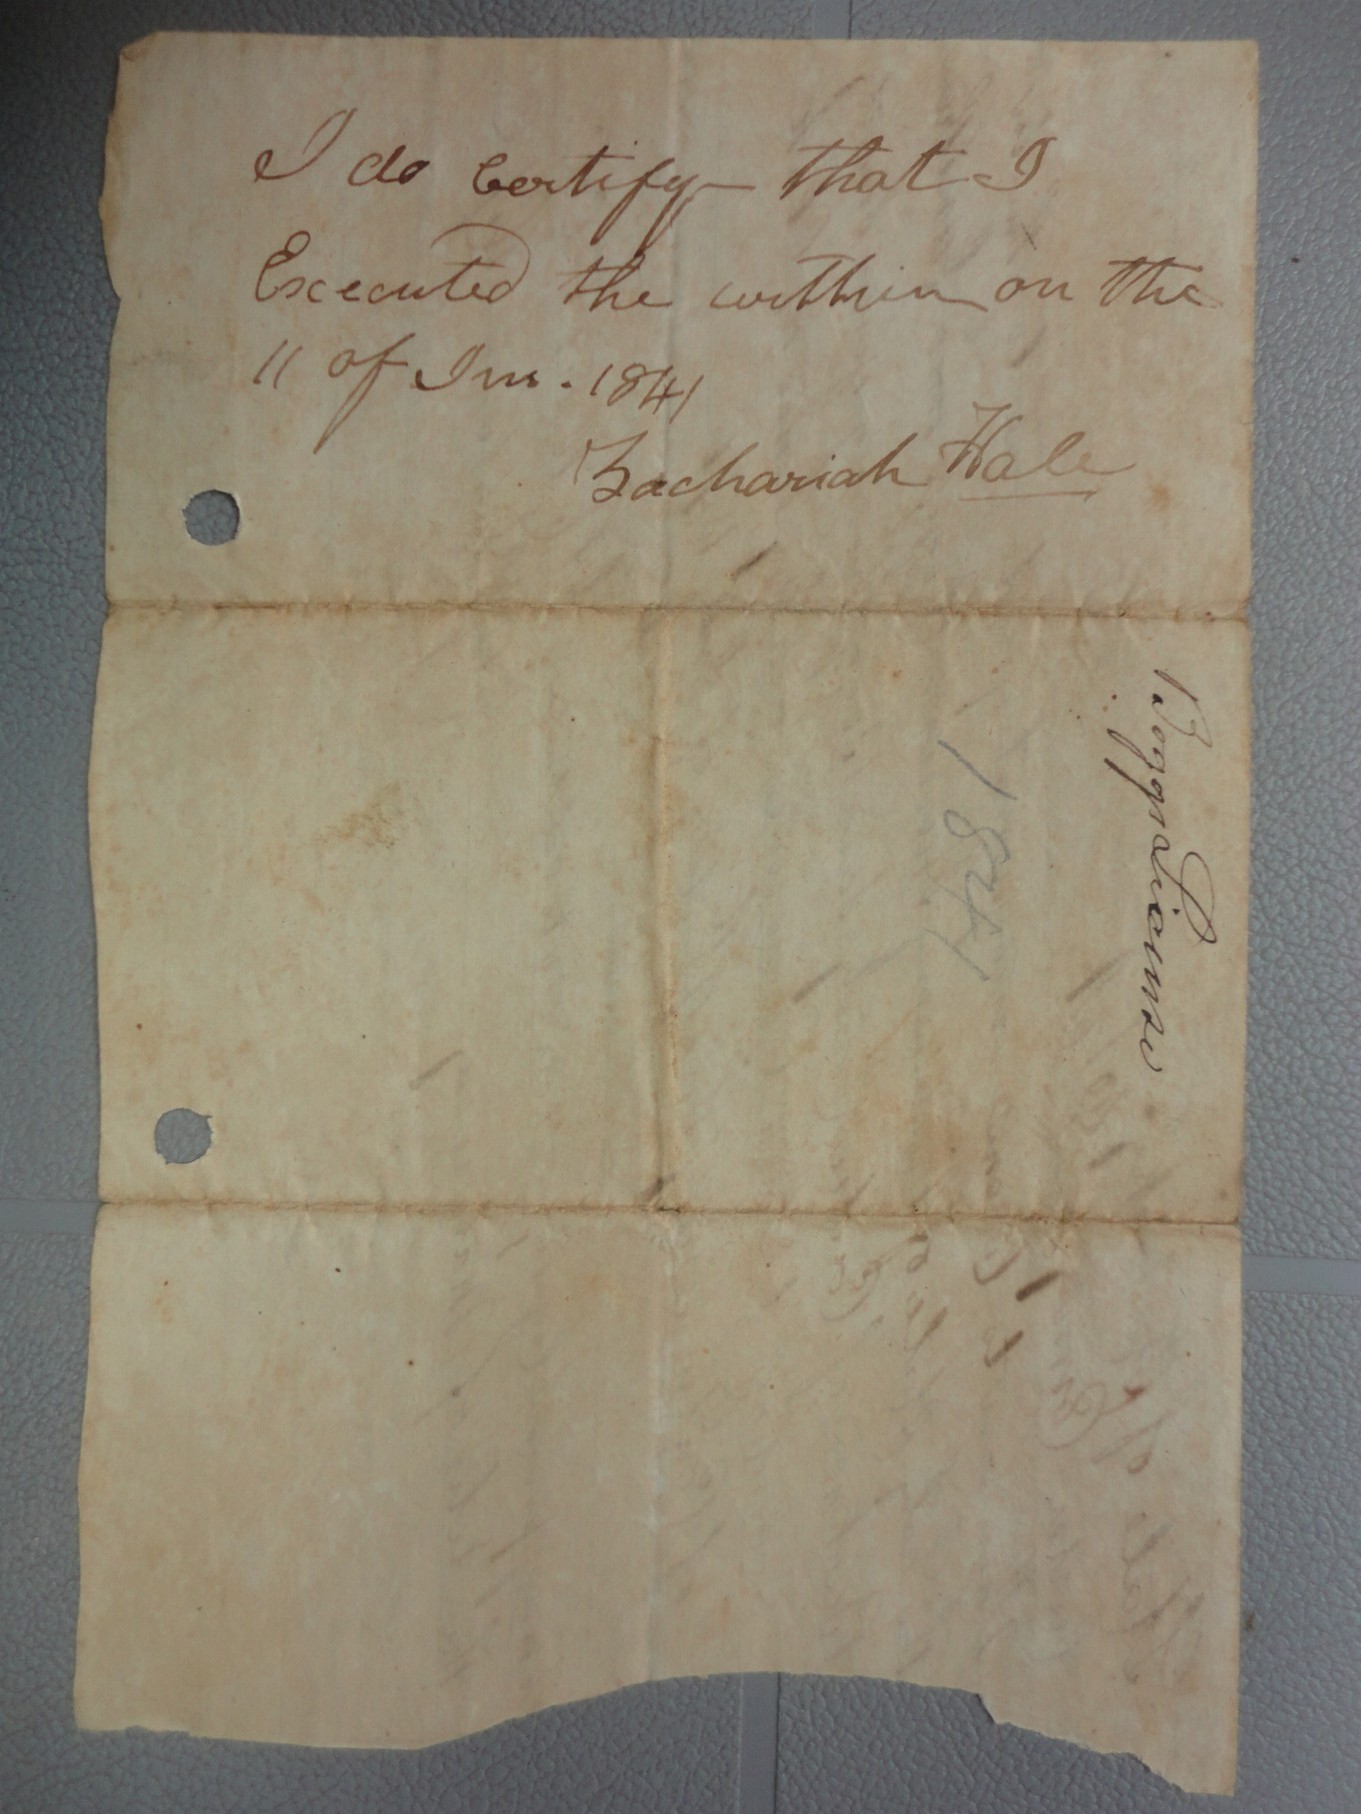 I do Certify that I
Executed the within on the
11 of Jun. 1841
Zachariah Hale
1841